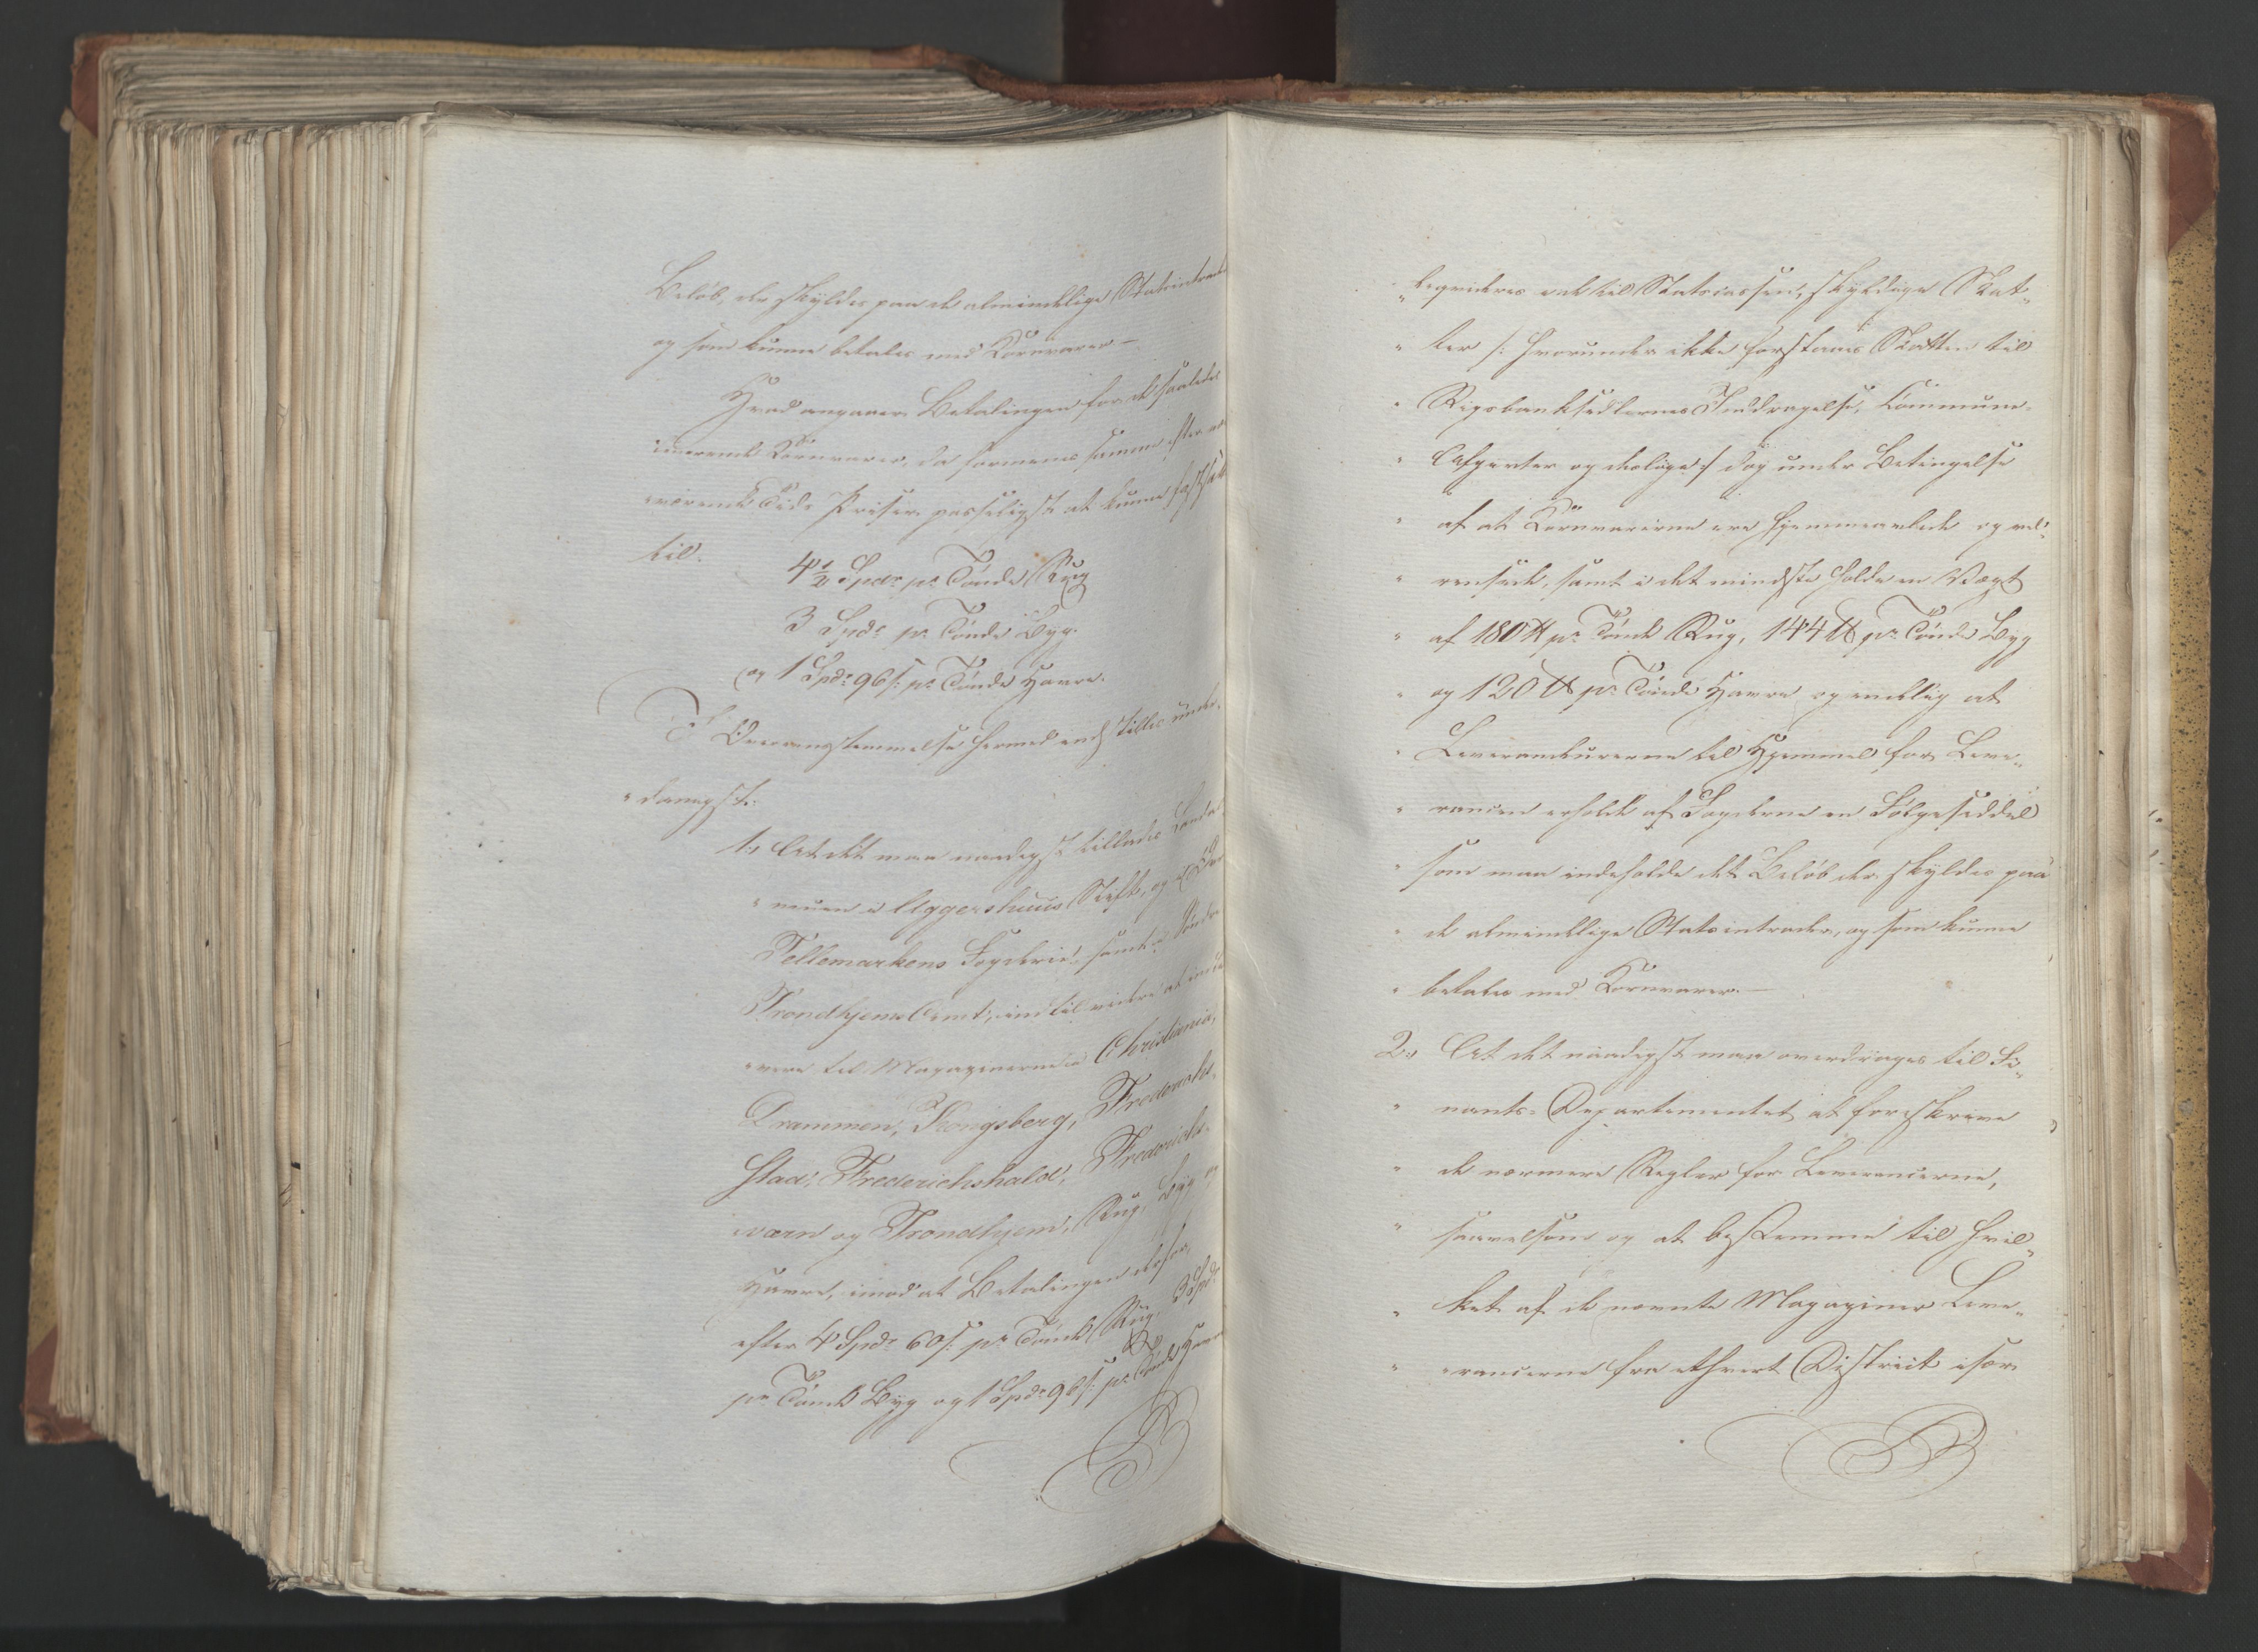 Beløb, der skyldes paa de almindelige Statsintrader
og som kunne betales med Kornvarer —
Hvad angaaer Betalingen for de saaledes
leverende Kornvarer, da formenes samme efter nu
værende Tids Priser passeligst at kunne fastsættes
til.
4½ Spdr pr Tønde Rug
3 Spdr pr Tønde Byg.
og 1 Spdr 96 s: pr Tønde Havre.
I Overeensstemmelse hermed indstilles under-
danigst:
1., At det maa naadigst tillades Landa-
mænd i Aggershuus Stift, og i
Tellemarkens Fogderie, samt i Søndre
Trondhjems Amt, indtil videre at
levere til Magazinerne i Christiania,
Drammen, Kongsberg, Frederichs-
stad, Frederichshald, Frederichs-
værn og Trondhjem, Rug, Byg og
Havre, imod at Betalingen derfor,
efter 4 Spdr 60 s: pr Tønde Rug, 3 Spdr
pr Tønde Byg og 1 Spdr 96 s: pr Tønde Havre
"liqvideres i de til Statscassen, skyldige Skat-
" ter /: hvorunder ikke forstaaes Skatten til
" Rigsbanksedlernes Inddragelse, Commune-
" Afgivter og deslige :/ dog under Betingelse
" af at Kornvarerne ere hjemmeavlede og vel-
" rensede, samt i det mindste holde en Vægt
" af 180 ℔ pr Tønde Rug, 144 ℔ pr Tønde Byg
" og 120 ℔ pr Tønde Havre og endelig at
" Leverandeurerne til Hjemmel for Leve-
" rancen erholde af Fogderne en Følgeseddel
" som maa indeholde det Beløb der skyldes paa
" de almindelige Statsintrader, og som kunne
" betales med Kornvarer. —
2., At det naadigst maa overdrages til Fi-
" nants-Departementet at foreskrive
" de nærmere Regler for Leverancerne,
" saavelsom og at bestemme til hvil-
" ket af de nævnte Magaziner Leve-
" rancerne fra ethvert District især